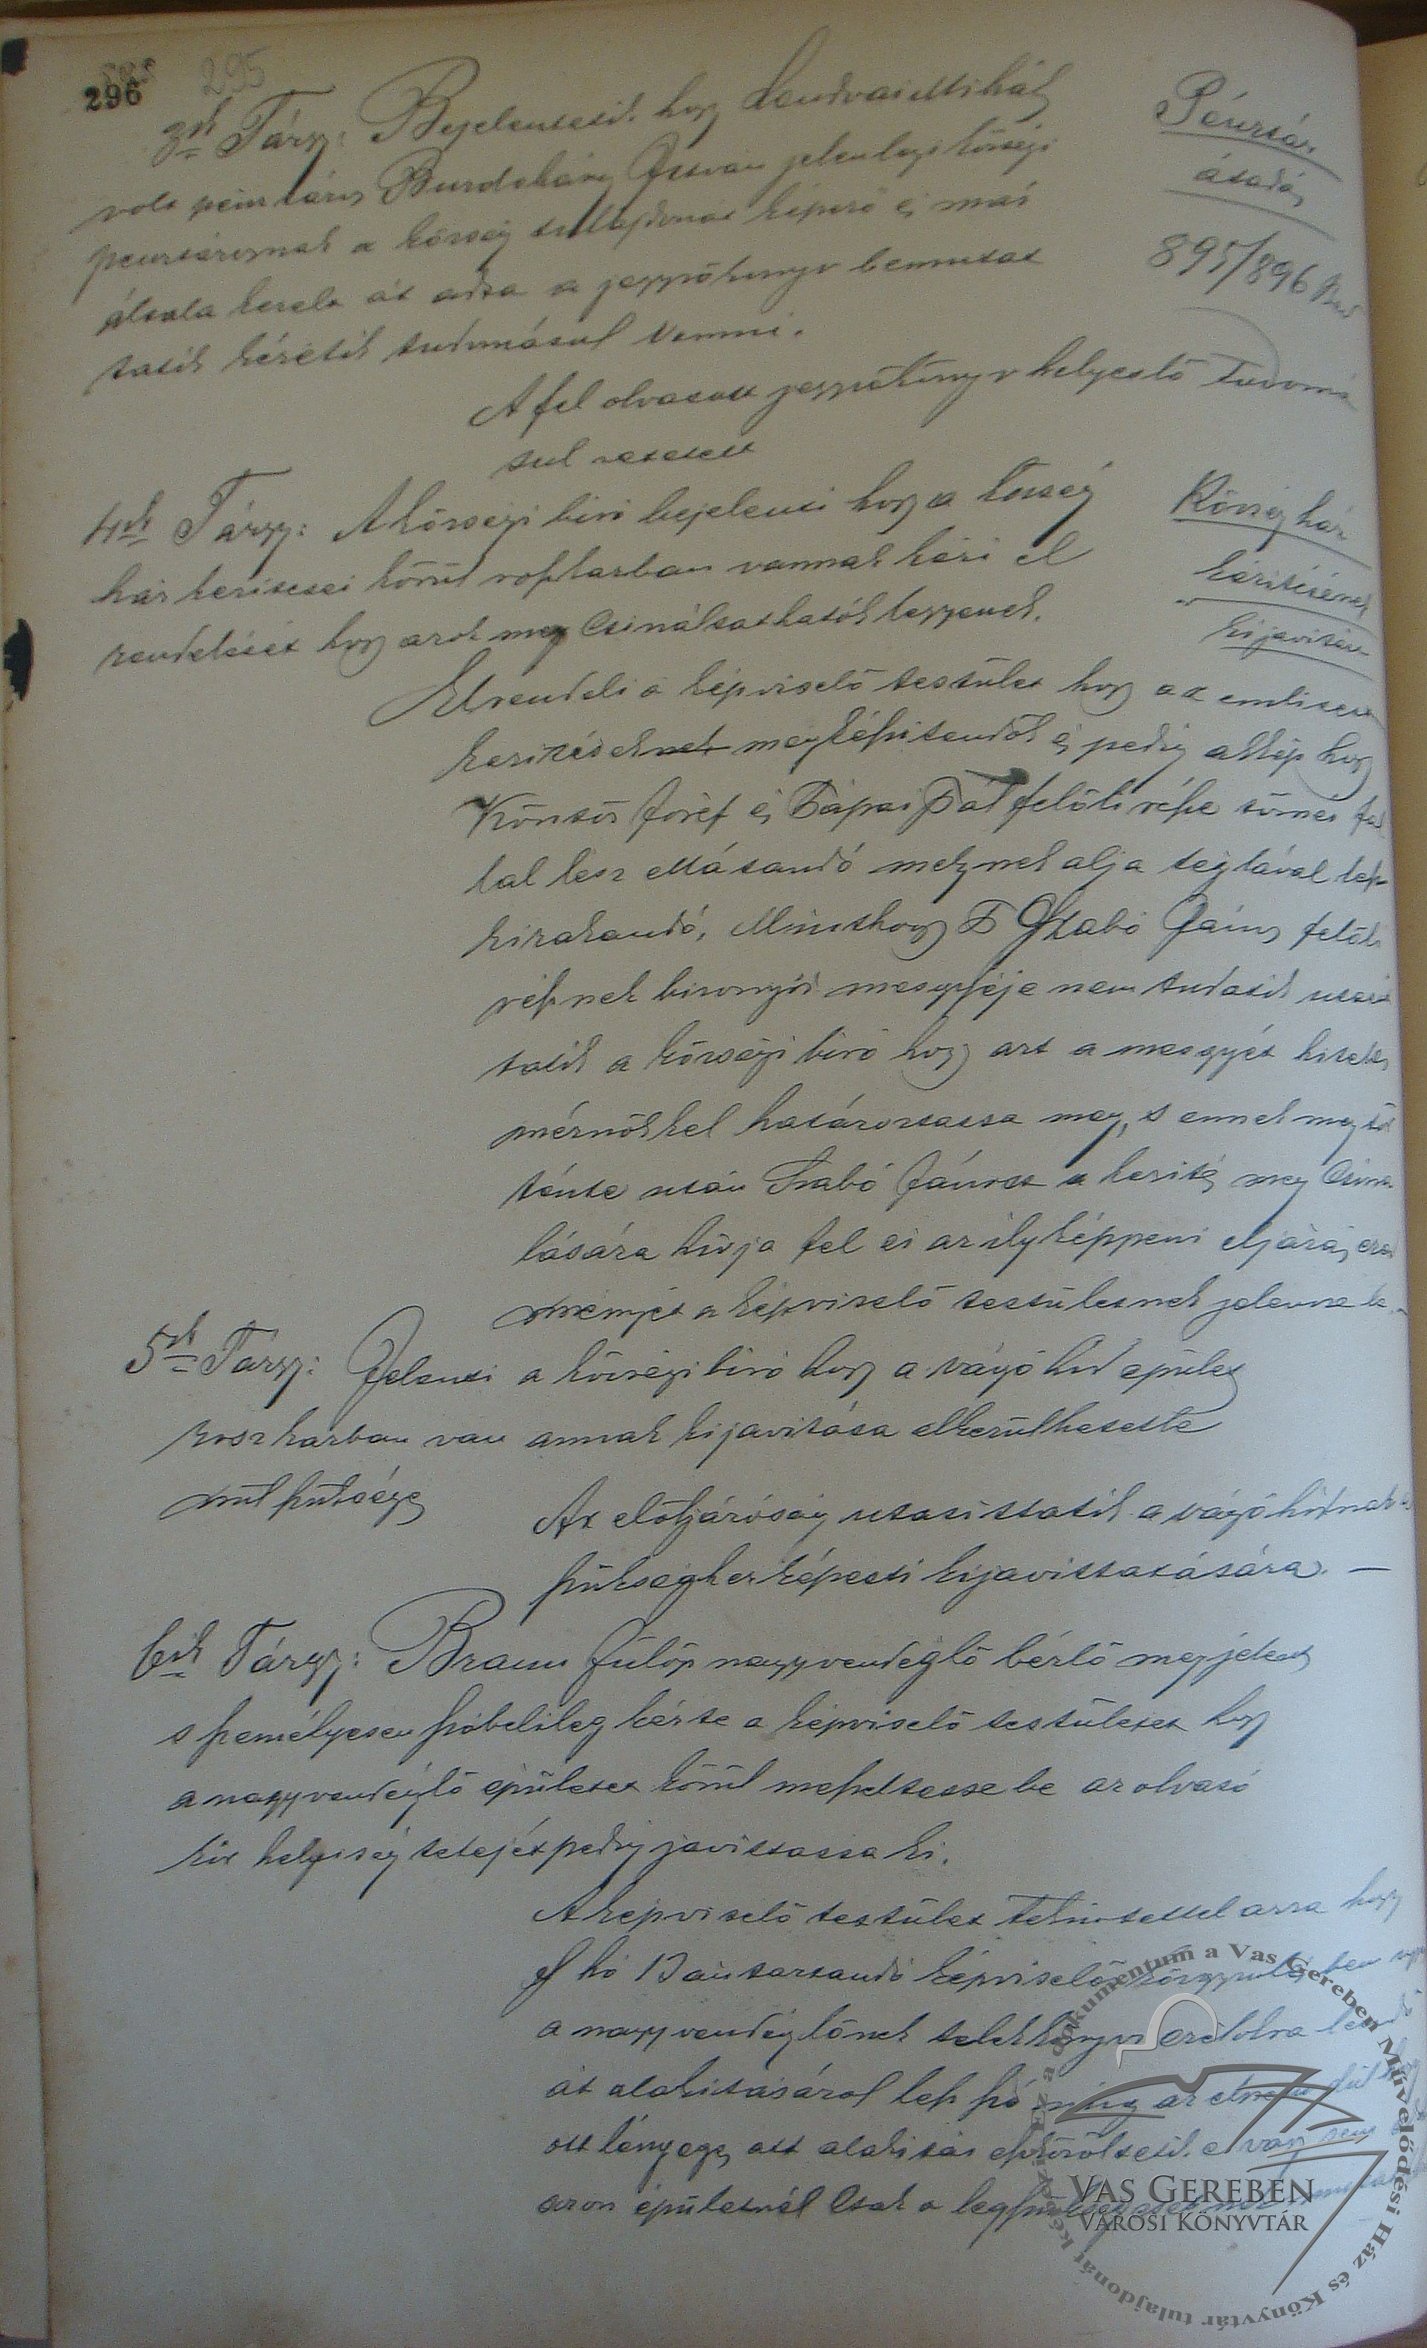 296 295
3ik Tárgy: Bejelentetik hogy Lendvai Mihály
volt pénztáros jelenlegi községi
pénztárosnak a község tulajdonát képező és más
által kezelt át adta a jegyzőkönyv bemutat
tatik kéretik tudomásul venni.
Pénztár
átadás
895/896
A fel olvasott jegyzőkönyv helyeslő tudomá
sul vetetett
4ik Tárgy: A községi biró bejelenti hogy a község
ház keritései körül roszkarban vannak kéri el
rendelését hogy azok meg csináltathatók legyenek.
Község ház
kerítésének
kijavitása
Elrendeli a képviselő testület hogy az emlitett
keritések megképitendők és pedig akkép hogy
József és Pápai Pál felőli része tömés fal
lal lesz ellátandó melynek alja téglával
kirakandó, Minthogy Szabó János felőli
résznek bizonyos mesgyéje nem tudatik utasit
tatik a községi biró hogy azt a mesgyét hiteles
mérnökkel határoztassa meg, s ennek meg tör
ténte után Szabó Jánost a kerités meg csiná
lására hívja fel és az ily képpeni eljárás ered
ményét a képviselő testületnek jelentse be.
5ik Tárgy: Jelenti a községi biró hogy a vágó hid épület
rosz karban van annak kijavitása elkerülhetetle
nül szükséges
Az előljáróság utasittatik a vágó hidnak
szükséghez képesti kijavittatására. —
6ik Tárgy: Braun Fülöp nagyvendéglő bérlő megjelent
s személyesen szóbelileg kérte a képviselő testületet hogy
a nagyvendéglő épületet körül meszeltesse be az olvasó
kör helyiség tetejét pedig javittassa ki.
A képviselő testület tekintettel arra hogy
f hó 13án tartandó képviselő közgyülésben
a nagyvendéglőnek telekkönyvi
át alakitásáról lesz szó míg az
ott lényeges át alakitás eszközöltetik
azon épületnél csak a legszükségesebbek
Ez a dokumentum a Vas Gereben Művelődési Ház és Könyvtár tulajdonát képezi
VAS GEREBEN
VÁROSI KÖNYVTÁR